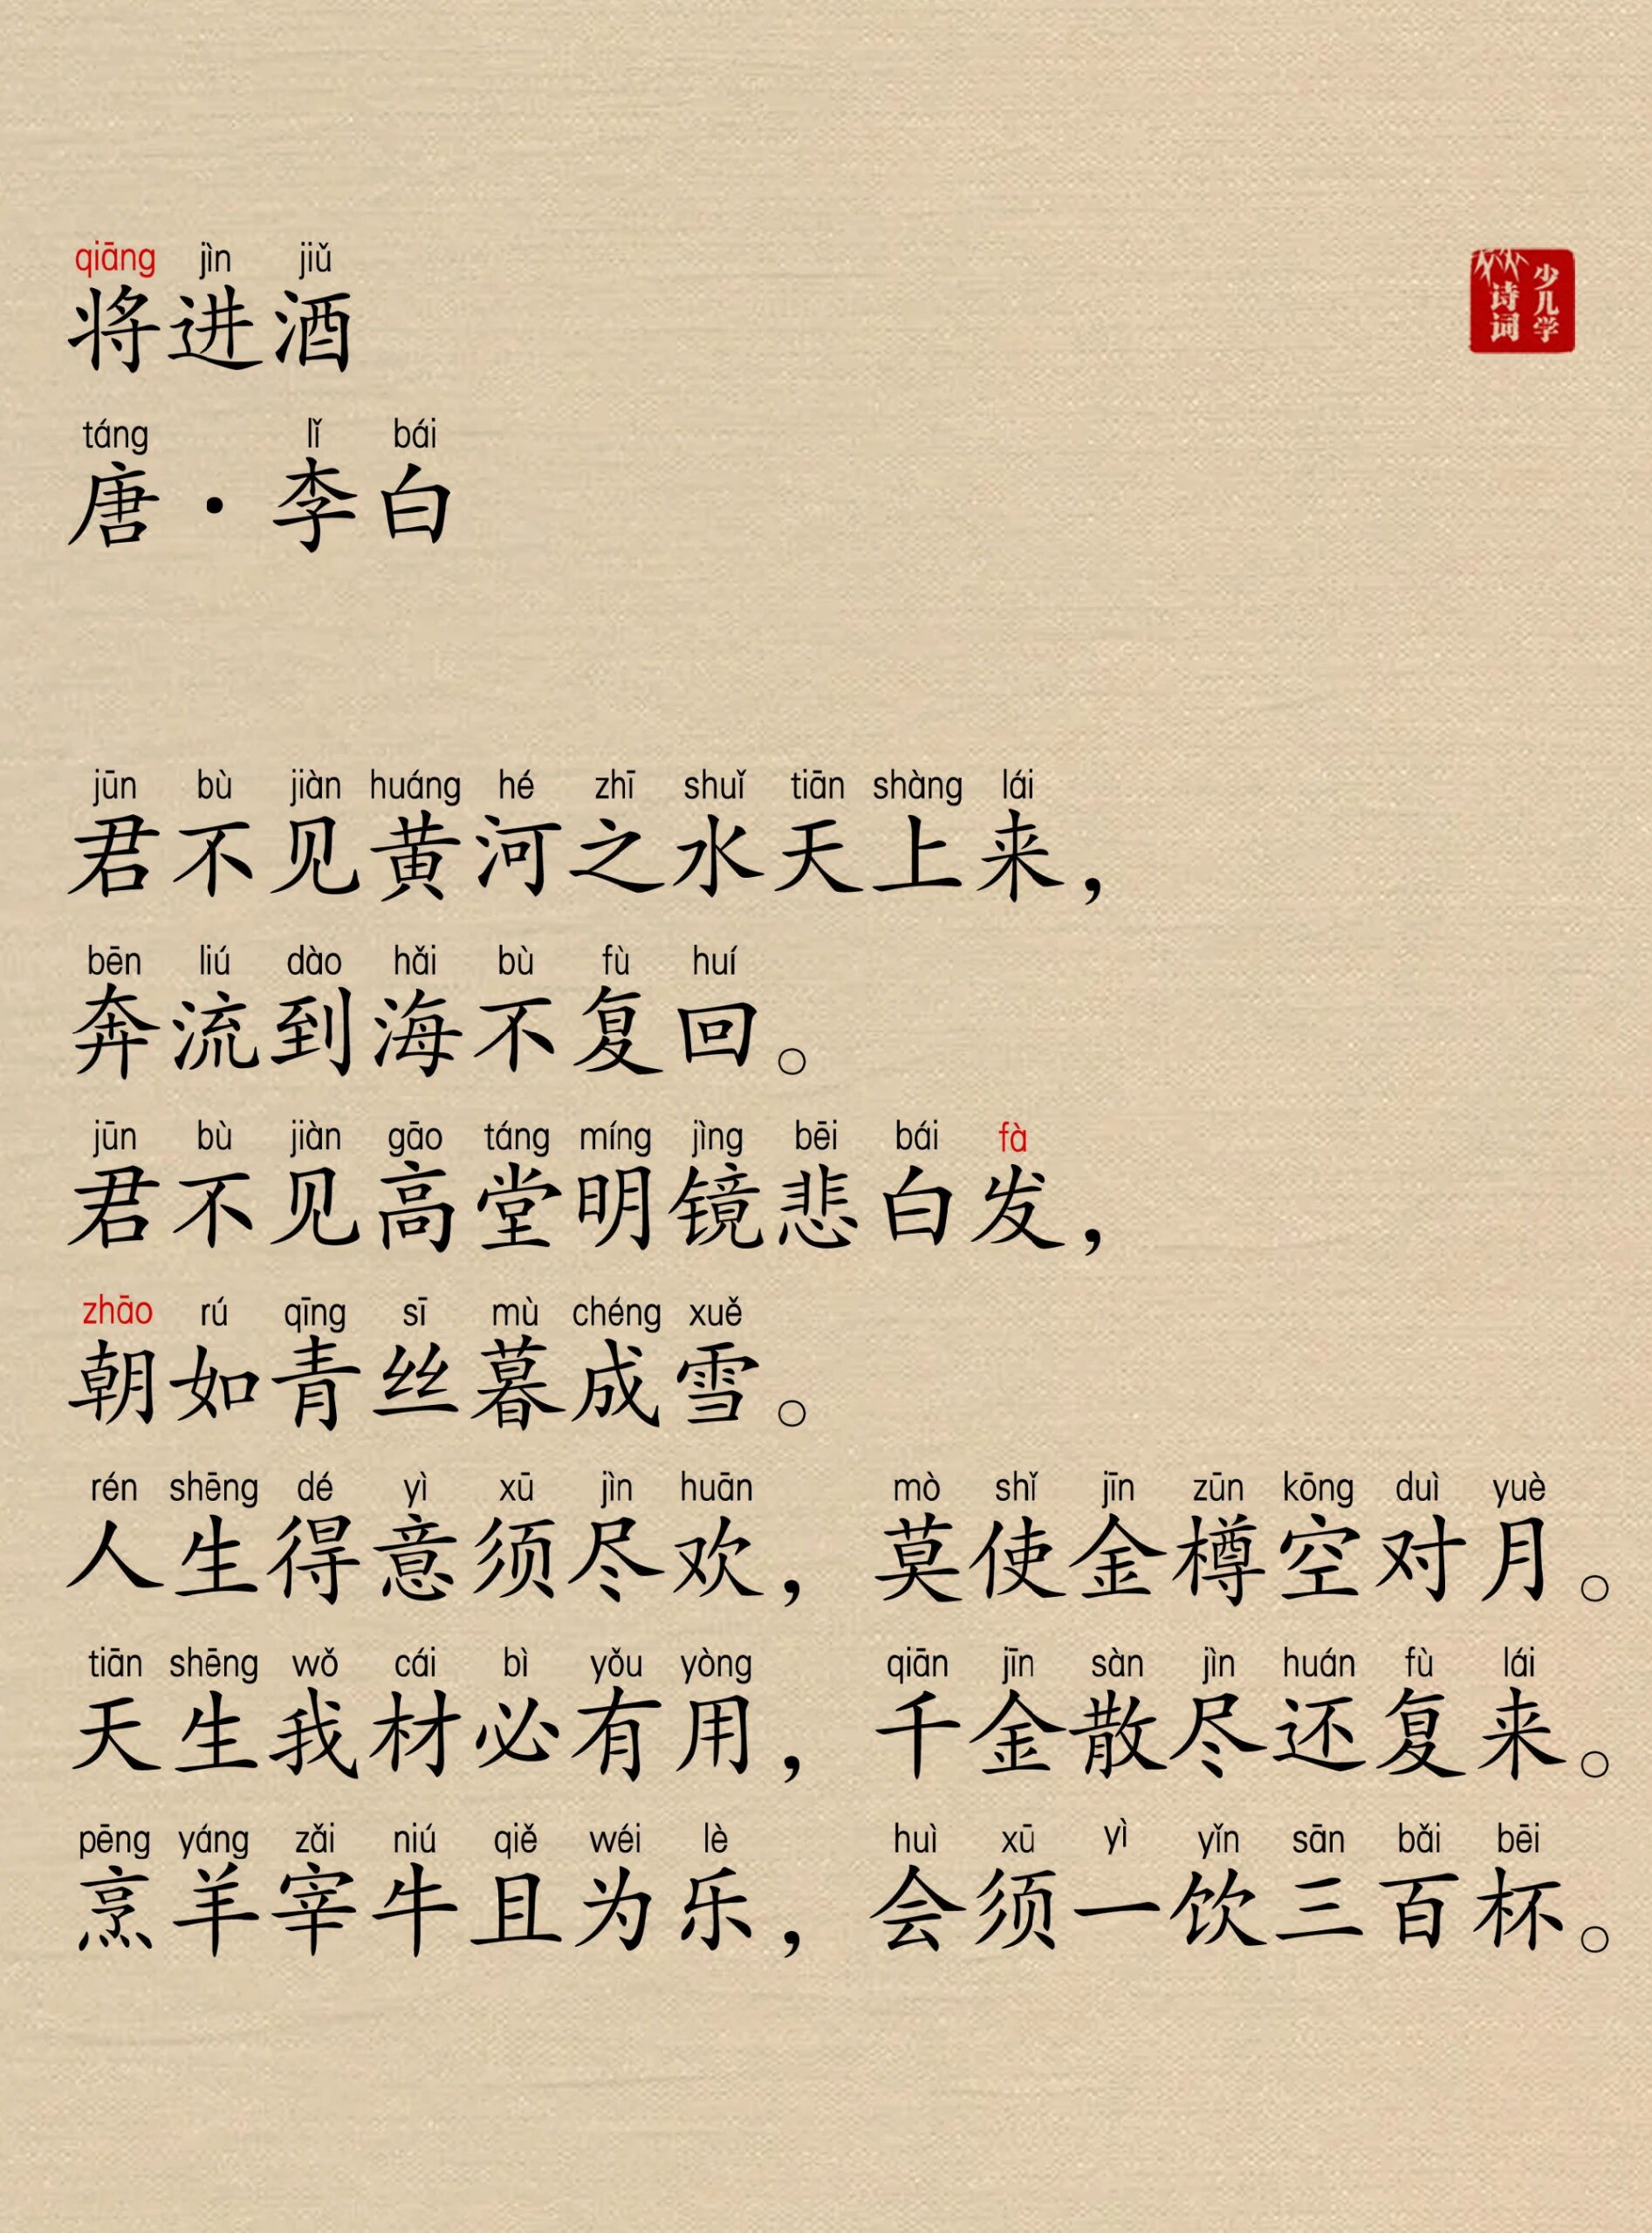 qiāng jìn jiǔ
将进酒
少儿学
诗词
táng lǐ bái
唐·李白
jūn bù jiàn huáng hé zhī shuǐ tiān shàng lái
君不见黄河之水天上来，
bēn liú dào hǎi bù fù huí
奔流到海不复回。
jūn bù jiàn gāo táng míng jìng bēi bái fà
君不见高堂明镜悲白发，
zhāo rú qīng sī mù chéng xuě
朝如青丝暮成雪。
rén shēng dé yì xū jìn huān mò shǐ jīn zūn kōng duì yuè
人生得意须尽欢，莫使金樽空对月。
tiān shēng wǒ cái bì yǒu yòng qiān jīn sàn jìn huán fù lái
天生我材必有用，千金散尽还复来。
pēng yáng zǎi niú qiě wéi lè huì xū yì yǐn sān bǎi bēi
烹羊宰牛且为乐，会须一饮三百杯。